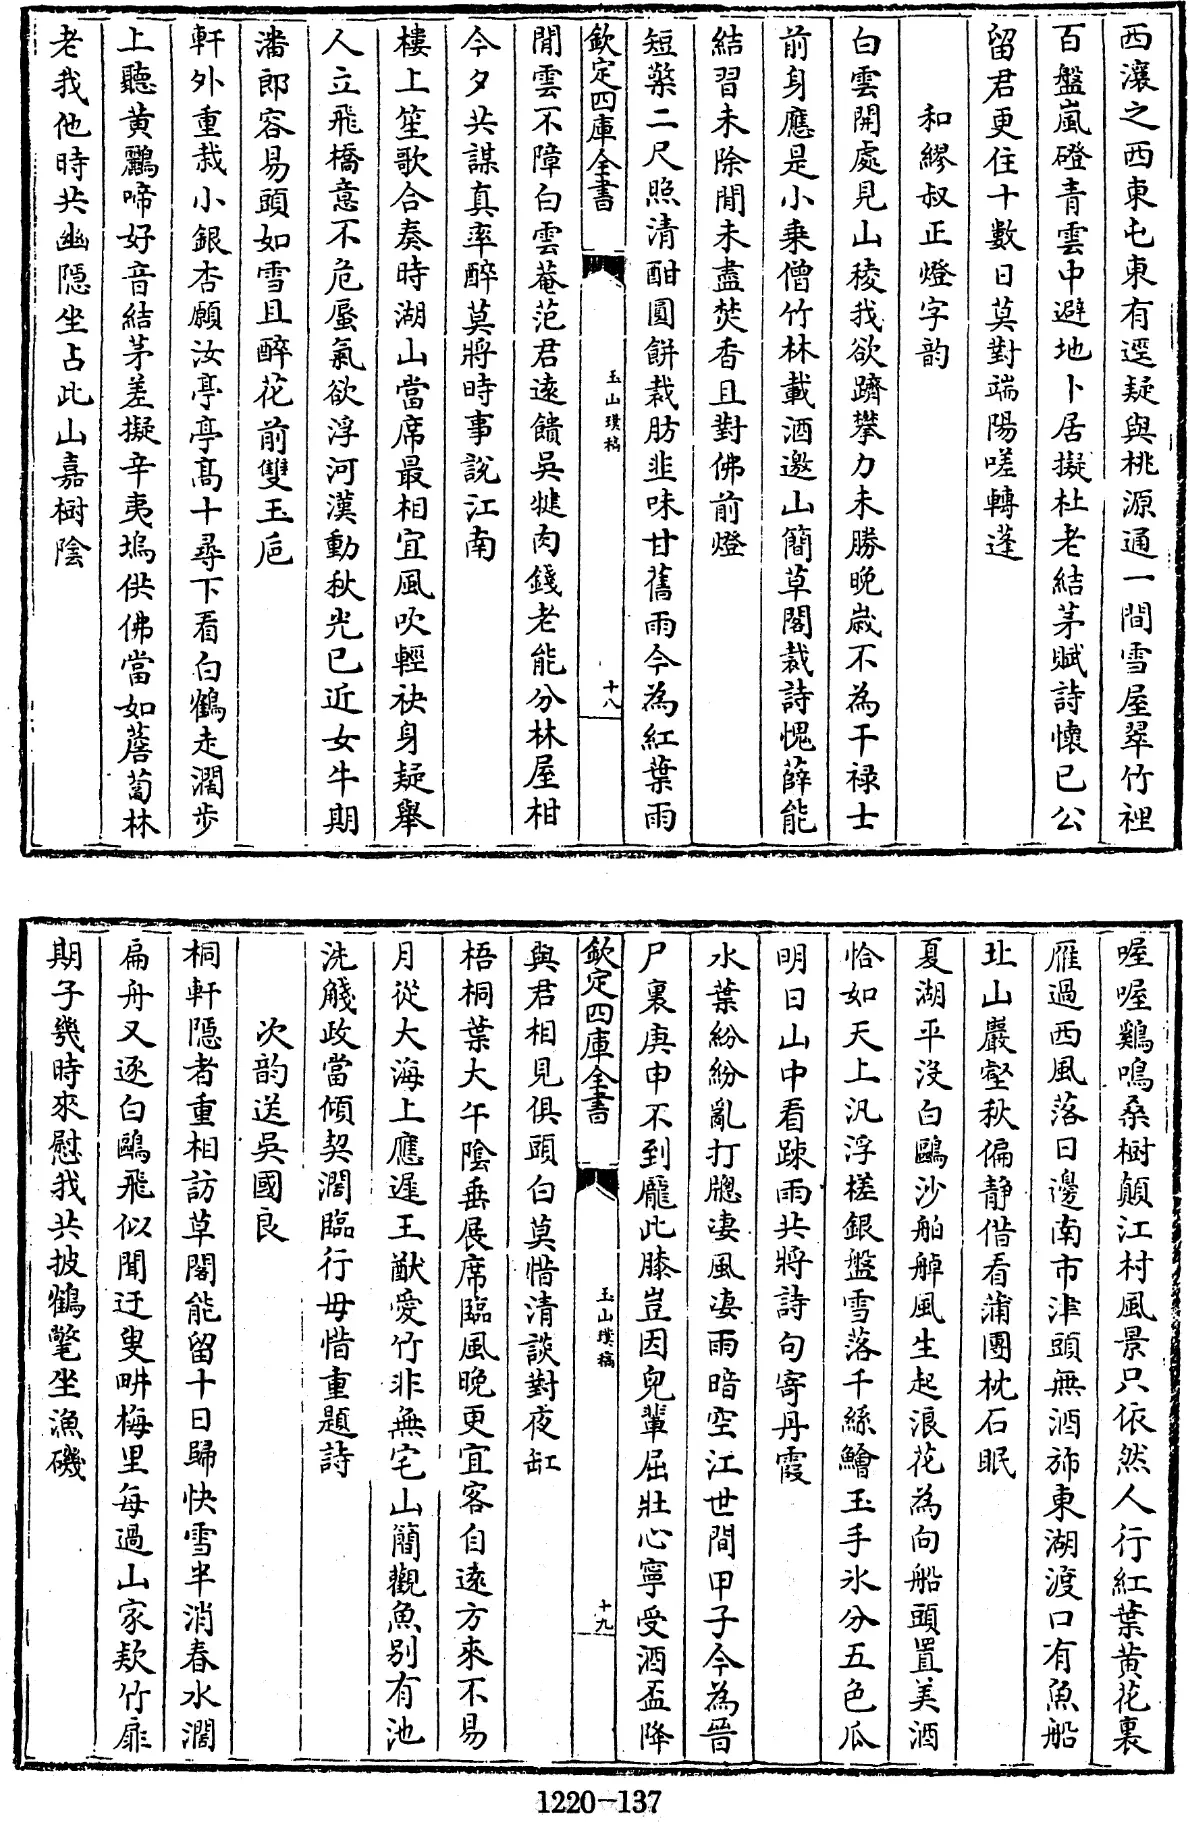 西瀼之西東屯東有逕疑與桃源通一間雪屋翠竹裡
百盤嵐磴青雲中避地卜居擬杜老結茅賦詩懷已公
留君更住十數日莫對端陽嗟轉蓬
和繆叔正燈字韵
白雲開處見山稜我欲躋攀力未勝晚歲不為干禄士
前身應是小乗僧竹林載酒邀山簡草閣裁詩愧薛能
結習未除閒未盡焚香且對佛前燈
短檠二尺照清酣圓餅裁肪韭味甘舊雨今為紅葉雨
欽定四庫全書
玉山璞稿
十八
閒雲不障白雲菴范君逺饋吳䐹肉錢老能分林屋柑
今夕共謀真率醉莫將時事說江南
樓上笙歌合奏時湖山當席最相宜風吹輕袂身疑舉
人立飛橋意不危蜃氣欲浮河漢動秋光已近女牛期
潘郎容易頭如雪且醉花前雙玉巵
軒外重栽小銀杏願汝亭亭髙十尋下看白鶴走濶步
上聽黄鸝啼好音結茅差擬辛夷塢供佛當如薝蔔林
老我他時共幽隠坐占此山嘉樹陰
喔喔鷄鳴桑樹顛江村風景只依然人行紅葉黄花裏
雁過西風落日邊南市津頭無酒斾東湖渡口有魚船
北山巖壑秋偏静借看蒲團枕石眠
夏湖平沒白鷗沙舶舺風生起浪花為向船頭置美酒
恰如天上汎浮槎銀盤雪落千絲鱠玉手氷分五色瓜
明日山中看疎雨共將詩句寄丹霞
水葉紛紛亂打牕凄風凄雨暗空江世間甲子今為晉
尸裏庚申不到龐此膝豈因兒輩屈壯心寧受酒盃降
欽定四庫全書
玉山璞稿
十九
與君相見俱頭白莫惜清談對夜缸
梧桐葉大午陰垂展席臨風晚更宜客自逺方來不易
月從大海上應遲王猷愛竹非無宅山簡觀魚别有池
洗觴政當傾契濶臨行毋惜重題詩
次韵送吳國良
桐軒隠者重相訪草閣能留十日歸快雪半消春水濶
扁舟又逐白鷗飛似聞迂叟畊梅里每過山家欵竹扉
期子幾時來慰我共披鶴氅坐漁磯
1220-137